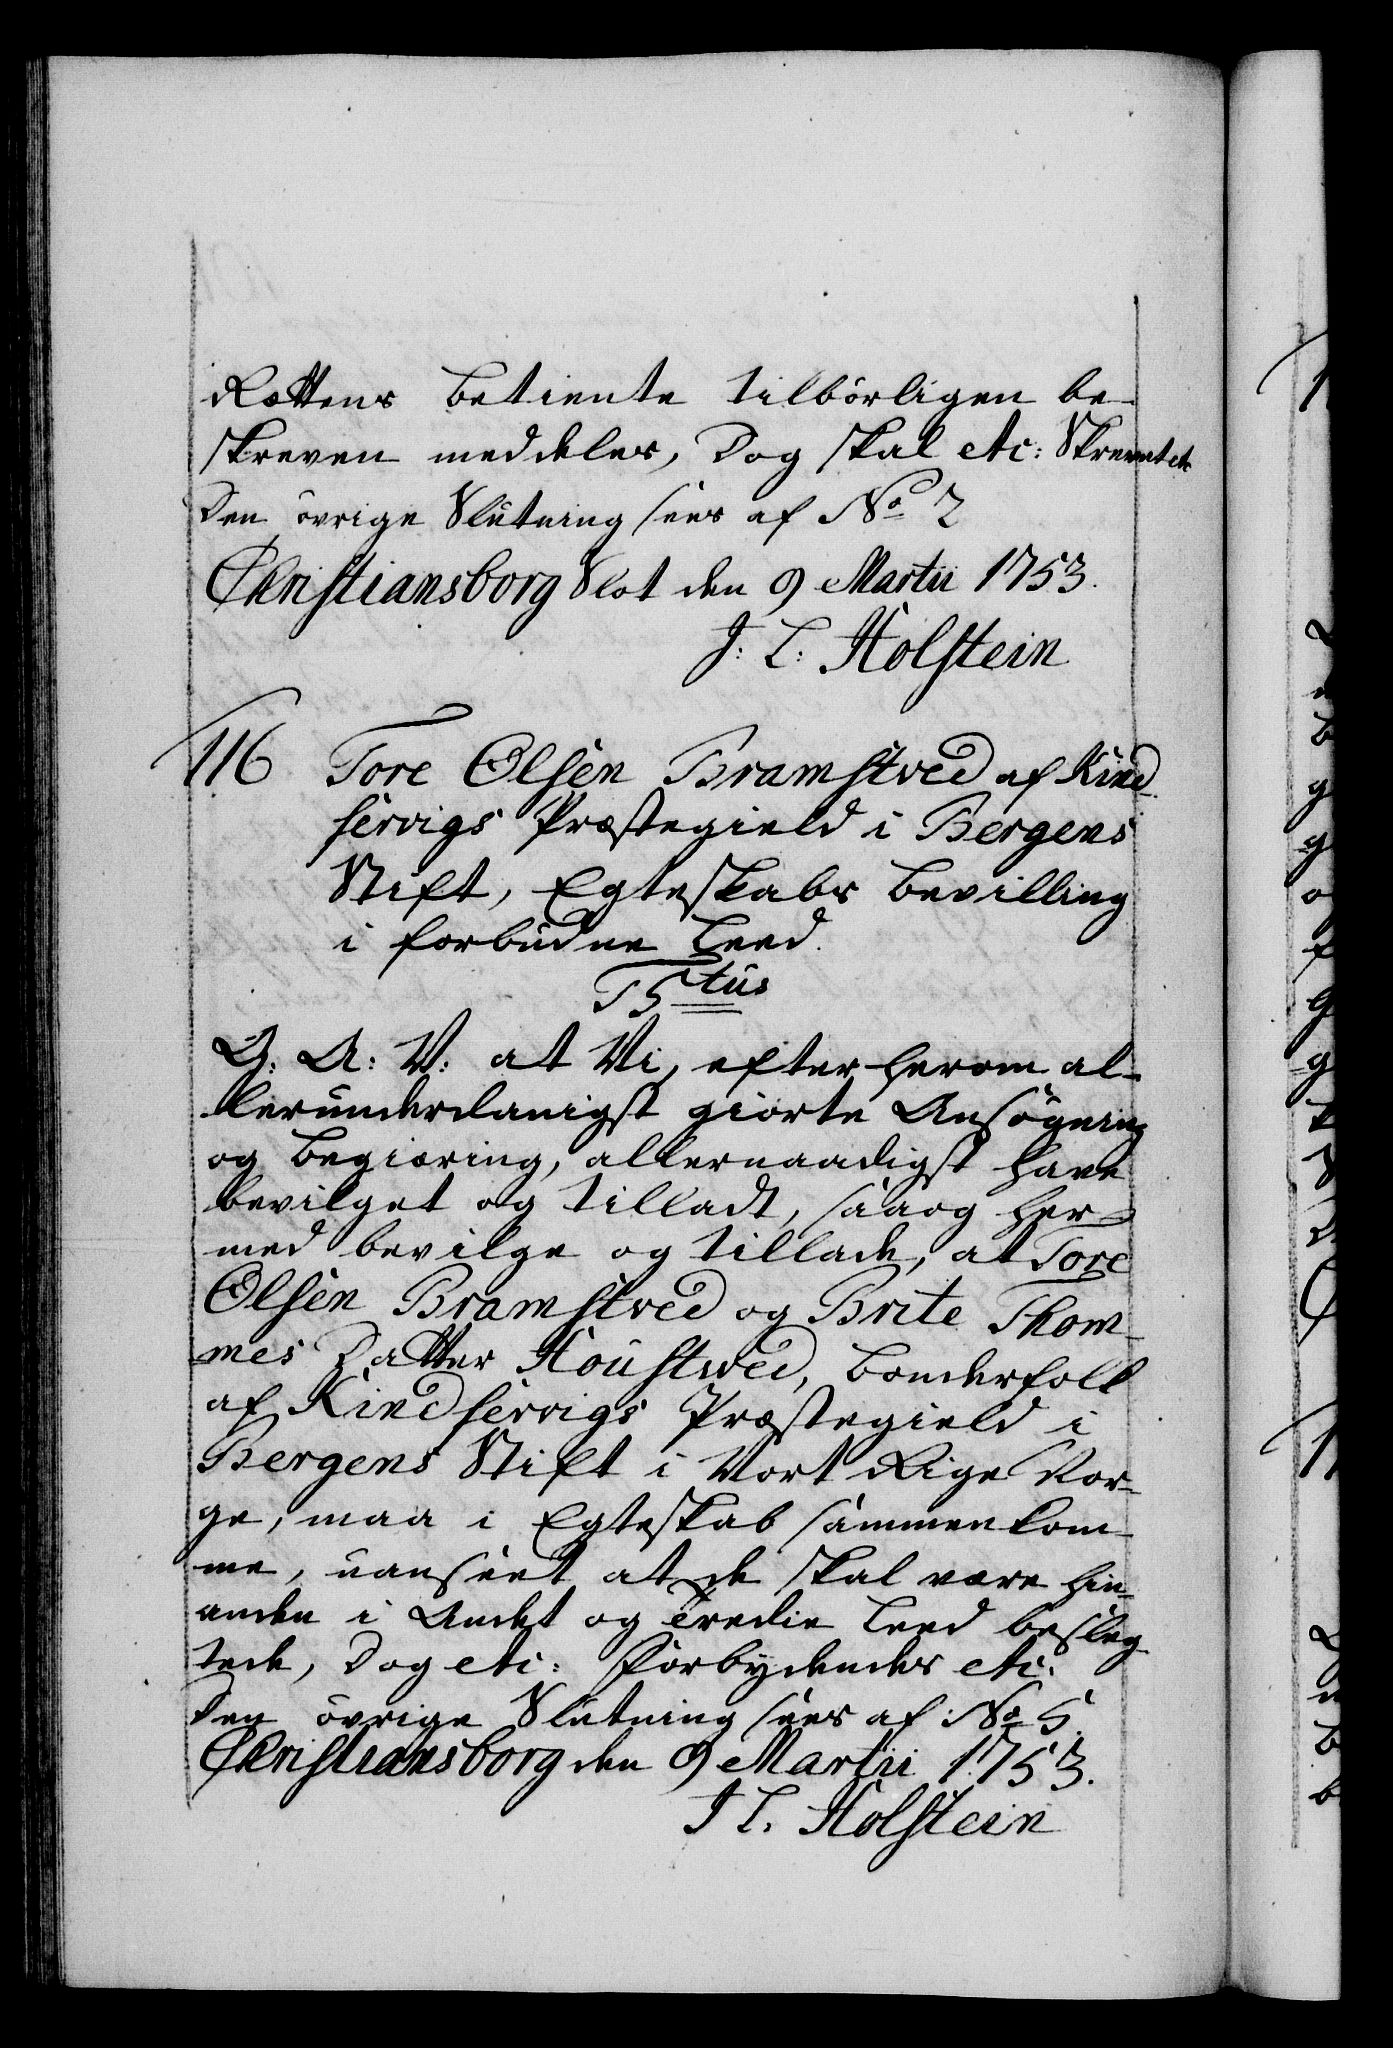 Rettens betiente tilbörligen be-
skreven meddeles, Dog skal etc: Skrevet etc
Den övrige Slutning sees af No 2
Christiansborg Slot den 9 Martii 1753.
J: L: Holstein
116 Tore Olsen Bramstved af Kind-
servigs Præstegield i Bergens
Stift, Egteskabs Bevilling
i forbudne Leed.
F5tus
G: A: V: at Vi, efter herom al-
lerunderdanigst giorte Ansögning
og Begiæring, allernaadigst have
bevilget og tilladt, saa og her-
med bevilge og tillade, at Tore
Olsen Bramstved og Brite Thom-
mes Datter Houstved, Bonderfolk
af Kindservigs Præstegield i
Bergens Stift i Vort Rige Nor-
ge, maa i Egteskab sammenkom-
me, uanseet at de skal være hin-
anden i Andet og Tredie Leed beslæg-
tede, Dog etc: Forbydendes etc:
Den övrige Slutning sees af No 5.
Christiansborg den 9 Martii 1753.
J L. Holstein